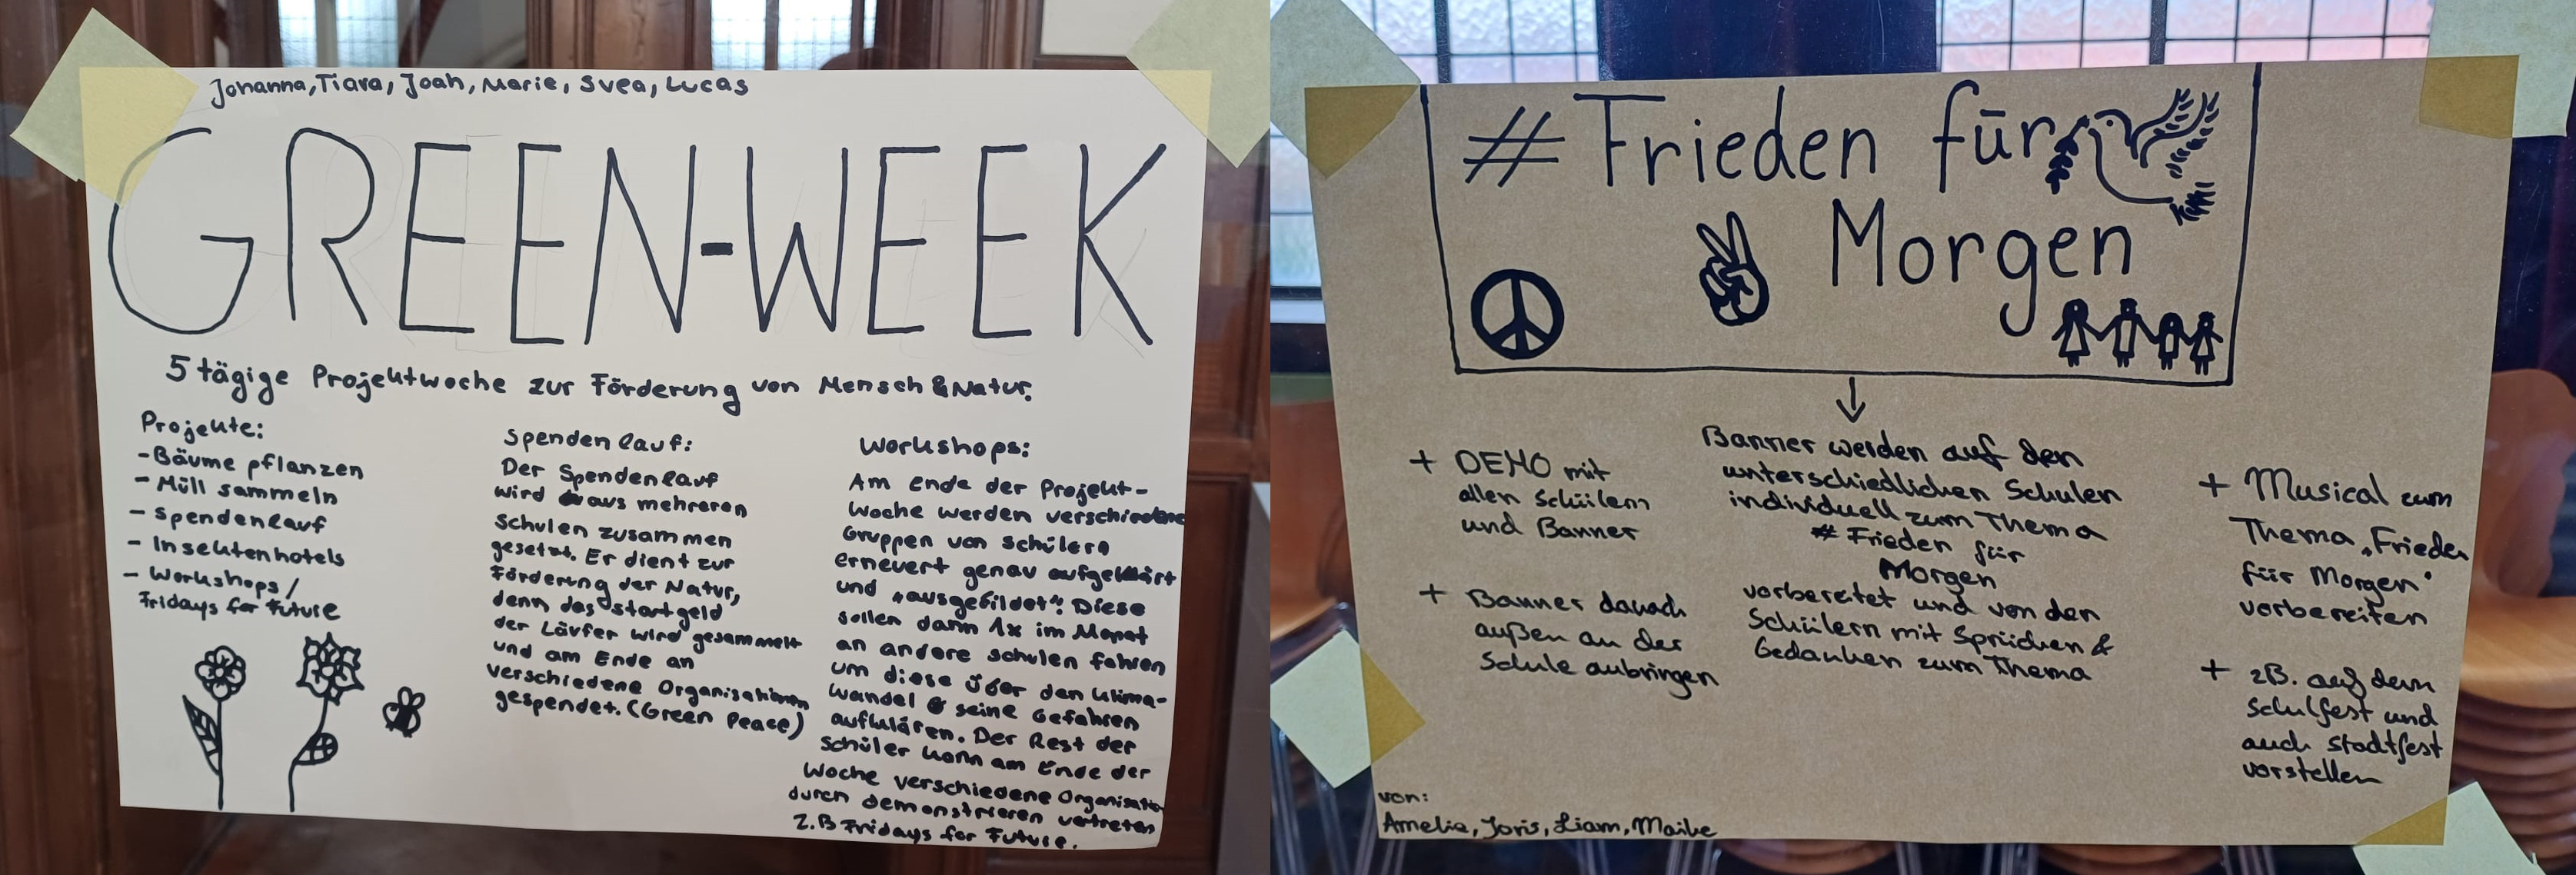 Johanna, Tiara, Joah, Marie, Svea, Lucas
GREEN-WEEK
5 tägige Projektwoche zur Förderung von Mensch & Natur.
Projekte:
- Bäume pflanzen
- Müll sammeln
- Spendenlauf
- Insektenhotels
- Workshops/
Fridays for Future
Spendenlauf:
Der Spendenlauf
wird aus mehreren
Schulen zusammen
gesetzt. Er dient zur
Förderung der Natur,
denn das Startgeld
der Läufer wird gesammelt
und am Ende an
verschiedene Organisationen
gespendet. (Green Peace)
Workshops:
Am Ende der Projekt-
woche werden verschiedene
Gruppen von Schülern
erneuert genau aufgeklärt
und „ausgebildet". Diese
sollen dann 1x im Monat
an andere Schulen fahren
um diese über den Klima-
wandel & seine Gefahren
aufklären. Der Rest der
Schüler kann am Ende der
Woche verschiedene
durch demonstrieren vertreten
z.B Fridays for Future.
# Frieden für
Morgen
+ DEMO mit
allen Schülern
und Banner
+ Banner danach
außen an der
Schule anbringen
Banner werden auf den
unterschiedlichen Schulen
individuell zum Thema
# Frieden für
Morgen
vorbereitet und von den
Schülern mit Sprüchen &
Gedanken zum Thema
+ Musical zum
Thema „Frieden
für Morgen"
vorbereiten
+ zB. auf dem
Schulfest und
auch Stadtfest
vorstellen
von:
Amelie, Joris, Liam, Maike